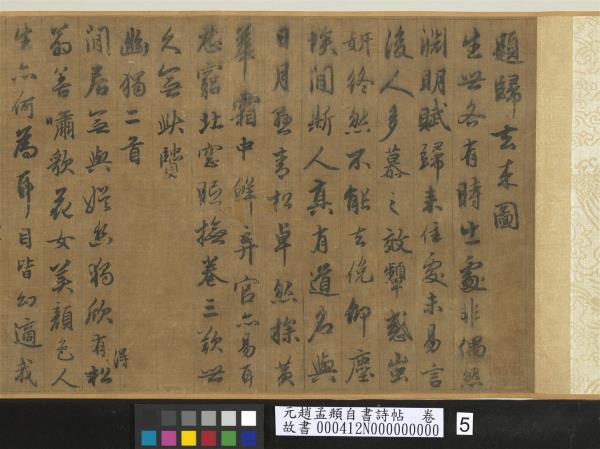 題歸去來圖
生世各有時出處非偶然
淵明賦歸來佳處未易言
後人多慕之效顰惑蚩
妍終然不能去俛仰塵
埃間斯人真有道名與
日月懸青松卓然操黃
華霜中鮮棄官亦易耳
忍窮北窗眠撫卷三歎世
久無此賢
幽獨二首
閒居無與娛幽獨欣有得松
翁善嘯歌花女美顏色人
生亦何為耳目皆幻適我
元趙孟頫自書詩帖 卷
故書 000412N000000000
5